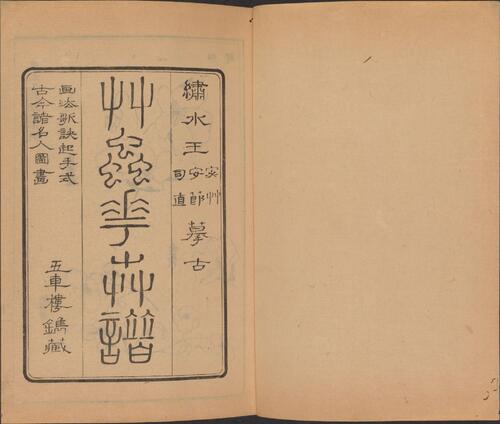 繡水王宓艸安節司直摹古
艸蟲華卉譜
画法歌訣起手式
古今諸名人圖畫
五車樓鐫藏